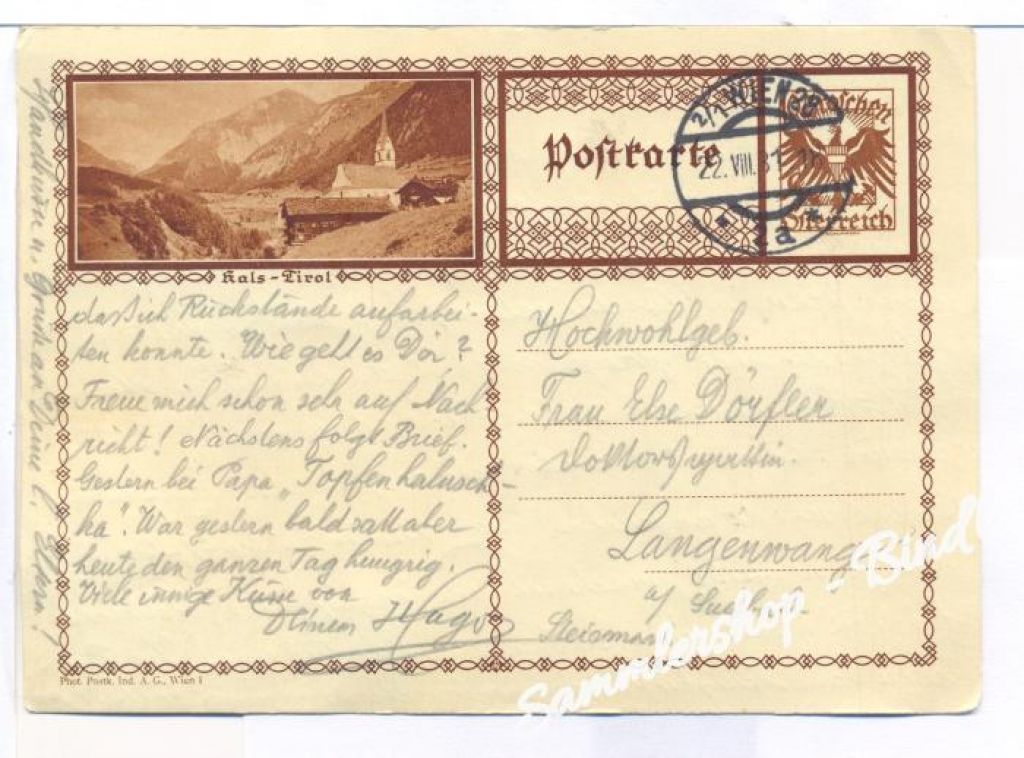 Postkarte
WIEN
22. VIII. 31
2a
Groschen
Österreich
Kals-Tirol
daß ich Rückstände aufarbei-
ten konnte. Wie geht es Dir?
Freue mich schon sehr auf Nach
richt! Nächstens folgt Brief.
Gestern bei Papa „Topfenhalusch-
ka“. War gestern bald satt aber
heute den ganzen Tag hungrig.
Viele innige Küsse von
Deinem Hugo
Handküsse u. Grüße an Deine l. Eltern!
Hochwohlgeb.
Frau Else Dörfler
Langenwang
a/
Steiermark
Phot. Postk. Ind. A. G., Wien I
Sammlershop - Bindl